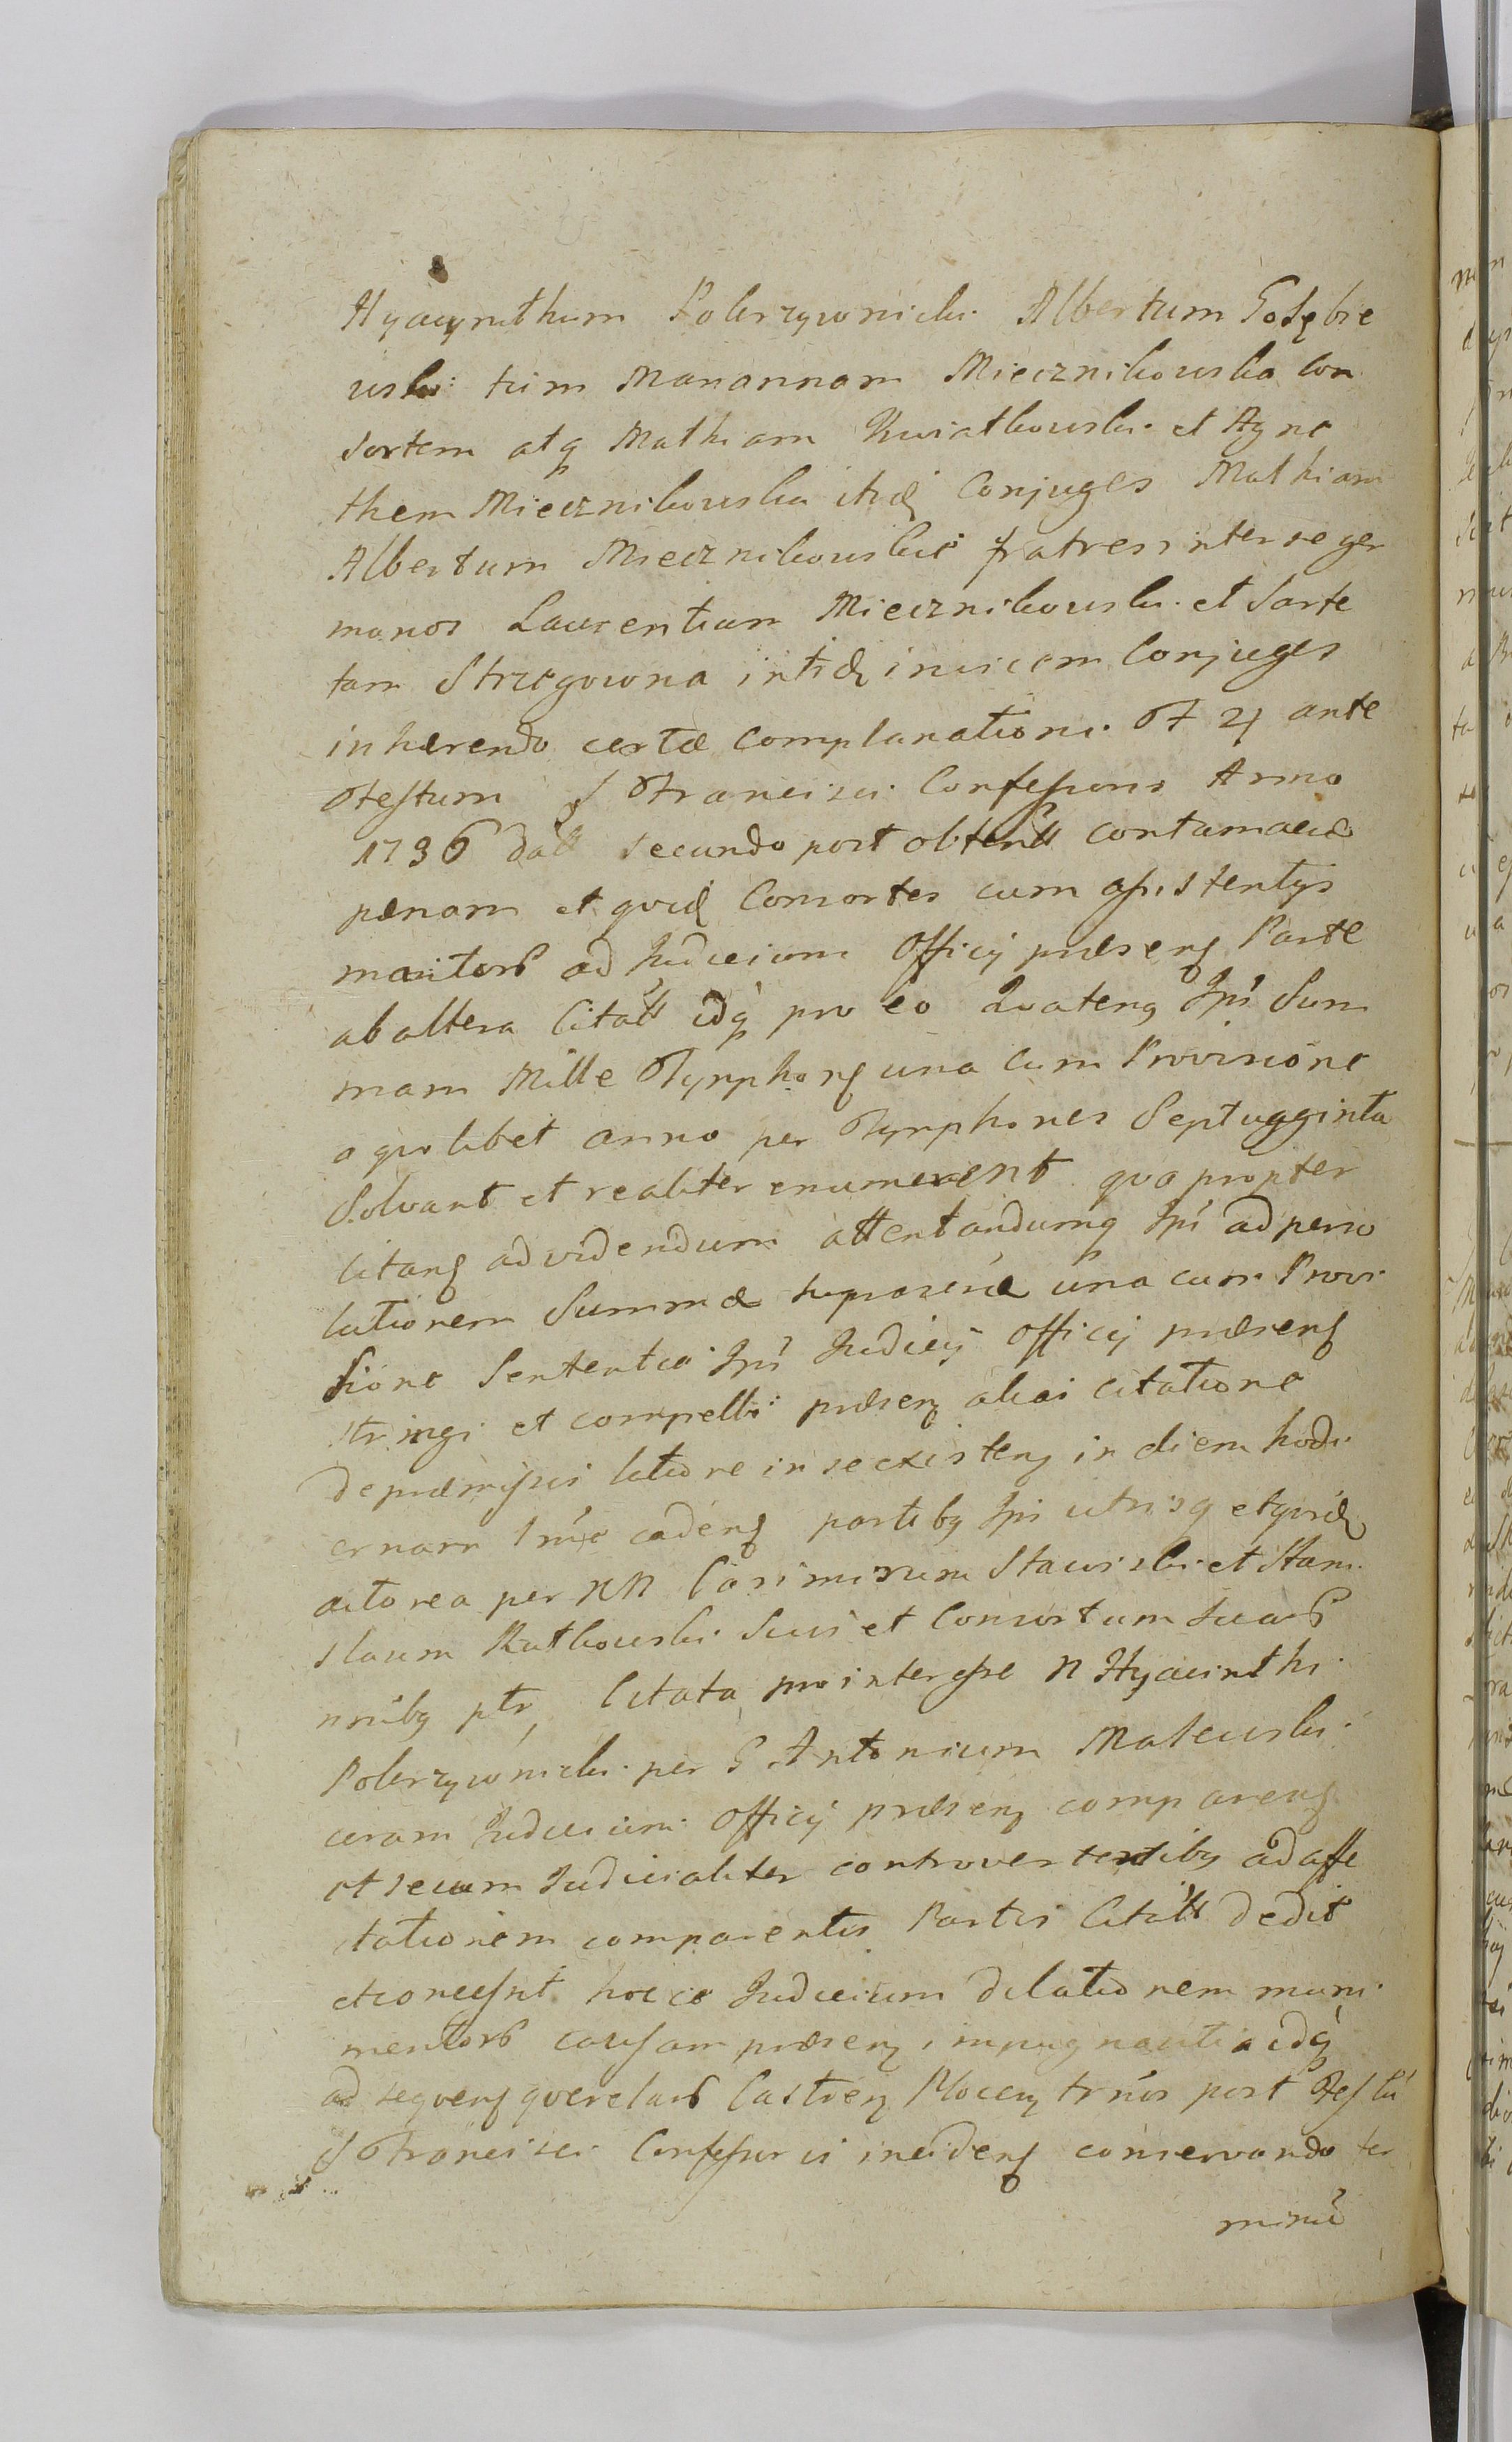 Hyacynthum Pokrzywnicki Albertum Gołębie
wski tum Mariannam Miecznikowska Con
sortem atq Mathiam Kwiatkowski et Agne
them Miecznikowska itid Conjuges Mathiam
Albertum Miecznikowskie fratres inter se ger
manos Laurentium Miecznikowski et Sarte
tam Strzegowna intid invicem Conjuges
inhærendo certæ Complanationi F 4 ante
Festum S Francisci Confessoris Anno
1736 datt secundo post obtentt contumaciæ
pænam et quid Consortes cum assistentys
maritorb ad Judicium Officij præsens Parte
ab altera Citatt idq pro eo Quateng Ipi Sum
mam Mille Tymphons una cum Provisione
a quolibet anno per Tymphones Septugginta
Solvant et realiter enumerent qua propter
Citans ad videndum attentandumq Ipi ad perso
lutionem Summæ suprascrie una cum Provi
sione Sententia Ipi Judicij Officij præsens
stringi et compelli præsens aliai Citatione
de præmissis latiore in se existens in diem hodi
ernam Irme cadens partibg Ipi utrisq et quid
actorea per NN Casimirum Stawiski et Stani
slaum Rutkowski Suis et Consortum Suarb
nnibg ptr, Citata, pro interesse N Hyacinthi
Pokrzywnicki per G Antonium Małewski
coram Judicium Officij præsens comparens
et secum Judicialiter controvertentibg ad affe
ctationem comparentis Partis Citatt dedit
et concessit hocce Judicium dilationem muni
mentorb causam præsens impugnantia idq
ad seqvens querelarb Castren Plocens trnos post Festu
S Francisci Confessoris incidens conservando ter
minu